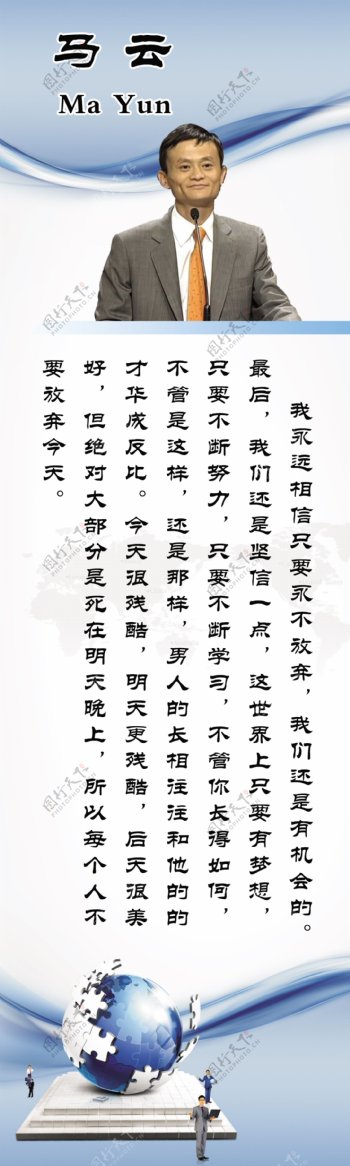 马云
Ma Yun
我永远相信只要永不放弃，我们还是有机会的。
最后，我们还是坚信一点，这世界上只要有梦想，
只要不断努力，只要不断学习，不管你长得如何，
不管是这样，还是那样，男人的长相往往和他的的
才华成反比。今天很残酷，明天更残酷，后天很美
好，但绝对大部分是死在明天晚上，所以每个人不
要放弃今天。
图行天下
PHOTOPHOTO.CN